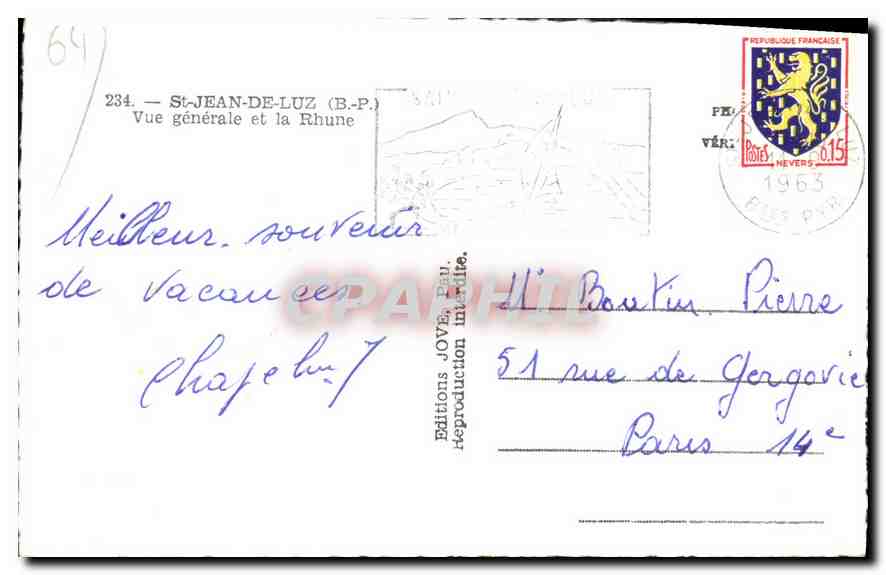 64
234. — St-JEAN-DE-LUZ (B.-P.)
Vue générale et la Rhune
Meilleur souvenir
de vacances
Editions JOVE, Pau.
Reproduction interdite.
REPUBLIQUE FRANÇAISE
POSTES
0,15
NEVERS
1963
Bses PYR.
Mr Boutin Pierre
51 rue de Gergovie
Paris 14e
CPAPHIL